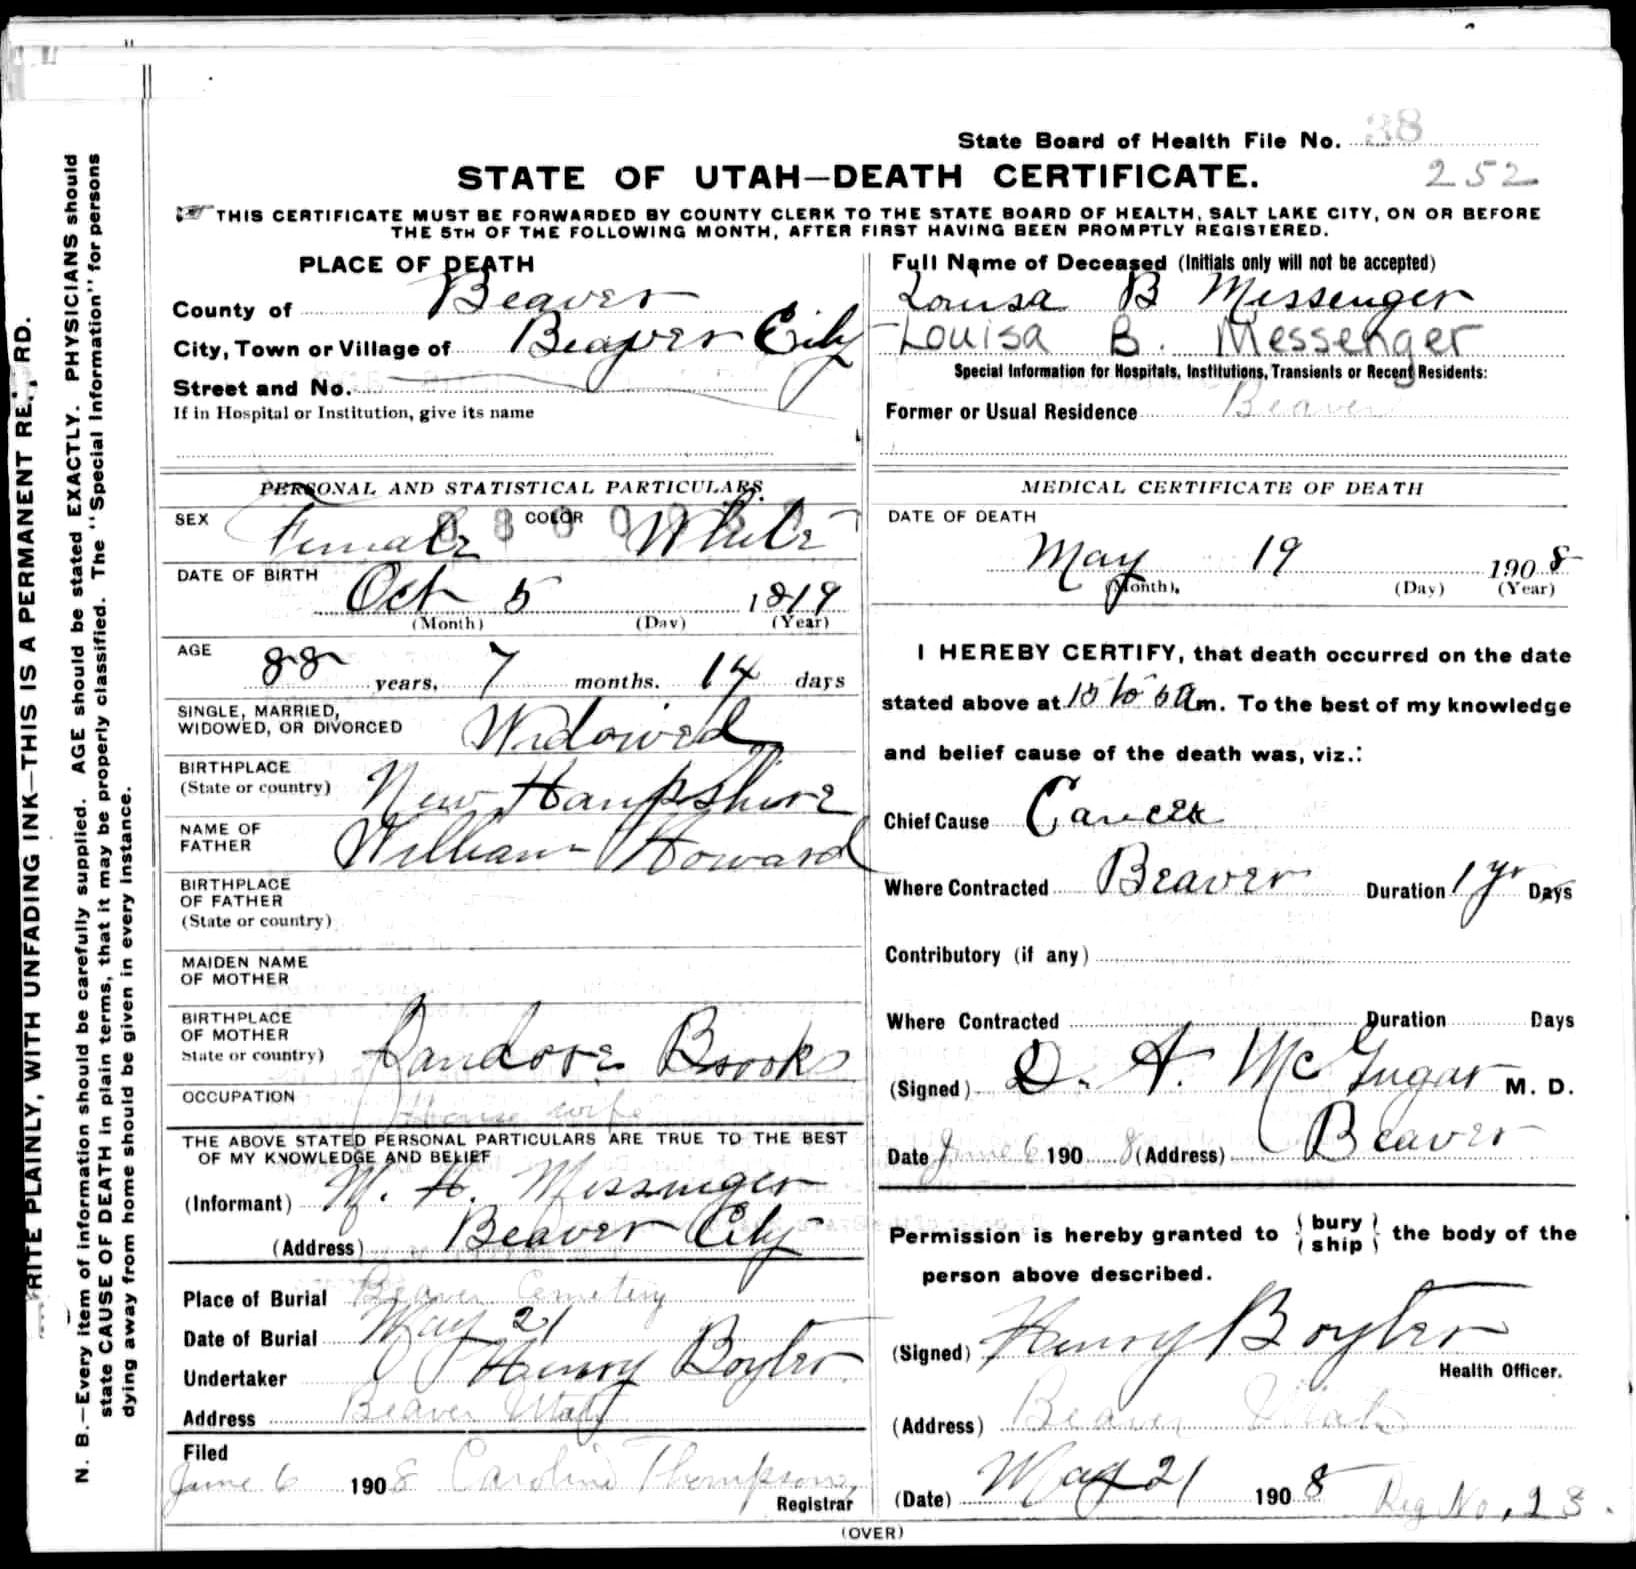 State Board of Health File No. 38
252
STATE OF UTAH—DEATH CERTIFICATE.
THIS CERTIFICATE MUST BE FORWARDED BY COUNTY CLERK TO THE STATE BOARD OF HEALTH, SALT LAKE CITY, ON OR BEFORE
THE 5TH OF THE FOLLOWING MONTH, AFTER FIRST HAVING BEEN PROMPTLY REGISTERED.
PLACE OF DEATH
County of Beaver
City, Town or Village of Beaver City
Street and No.
If in Hospital or Institution, give its name
Full Name of Deceased (Initials only will not be accepted)
Louisa B Messenger
Louisa B. Messenger
Special Information for Hospitals, Institutions, Transients or Recent Residents:
Former or Usual Residence Beaver
PERSONAL AND STATISTICAL PARTICULARS.
SEX Female COLOR White
DATE OF BIRTH
Oct 5 1819
(Month) (Day) (Year)
AGE
88 years, 7 months. 14 days
SINGLE, MARRIED,
WIDOWED, OR DIVORCED Widowed
BIRTHPLACE
(State or country) New Hampshire
NAME OF
FATHER William Howard
BIRTHPLACE
OF FATHER
(State or country)
MAIDEN NAME
OF MOTHER
BIRTHPLACE
OF MOTHER
State or country) Brooks
OCCUPATION
House wife
THE ABOVE STATED PERSONAL PARTICULARS ARE TRUE TO THE BEST
OF MY KNOWLEDGE AND BELIEF
(Informant) H. Messenger
(Address) Beaver City
Place of Burial Beaver Cemetery
Date of Burial May 21
Undertaker Henry Boyter
Address Beaver Utah
Filed
June 6 1908 Caroline Thompson,
Registrar
MEDICAL CERTIFICATE OF DEATH
DATE OF DEATH
May 19 1908
(Month), (Day) (Year)
I HEREBY CERTIFY, that death occurred on the date
stated above at m. To the best of my knowledge
and belief cause of the death was, viz.:
Chief Cause Cancer
Where Contracted Beaver Duration 1 yr Days
Contributory (if any)
Where Contracted Duration Days
(Signed) A. McGugar M. D.
Date June 6 1908 (Address) Beaver
Permission is hereby granted to { bury ship } the body of the
person above described.
(Signed) Henry Boyter
Health Officer.
(Address) Beaver Utah
(Date) May 21 1908 Reg No. 23.
(OVER)
RITE PLAINLY, WITH UNFADING INK—THIS IS A PERMANENT RE RD.
N. B.—Every item of information should be carefully supplied. AGE should be stated EXACTLY. PHYSICIANS should
state CAUSE OF DEATH in plain terms, that it may be properly classified. The "Special Information" for persons
dying away from home should be given in every instance.